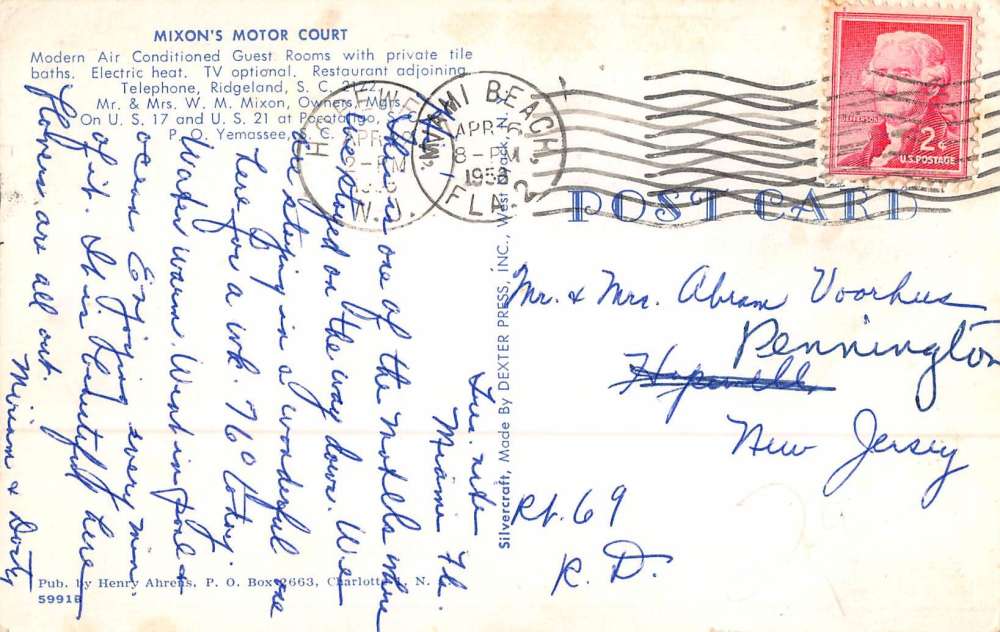 MIXON'S MOTOR COURT
Modern Air Conditioned Guest Rooms with private tile
baths. Electric heat. TV optional. Restaurant adjoining
Telephone, Ridgeland, S. C. 2122
Mr. & Mrs. W. M. Mixon, Owners, Mgrs.
On U. S. 17 and U. S. 21 at Pocotaligo, S. C.
P. O. Yemassee, S. C.
MIAMI BEACH,
APR 6
8-PM
1958
FLA. 2
APR
N.J.
JEFFERSON
2¢
U.S. POSTAGE
POST CARD
Tues. nite
Miami Fla.
Hi,
This is one of the Motels where
we stayed on the way down. We
are staying in a wonderful one
here for a wk. 76° today.
Water warm. Went in pool &
ocean. Enjoying every min.
of it. It is beautiful here
flowers are all out.
Miriam & Doris
Silvercraft, Made By DEXTER PRESS, INC., West Nyack, N. Y.
Mr. & Mrs. Abram Voorhees
Pennington
Hopewell
New Jersey
Rt. 69
R. D.
Pub. by Henry Ahrens, P. O. Box 2663, Charlotte 1, N. C.
5991B